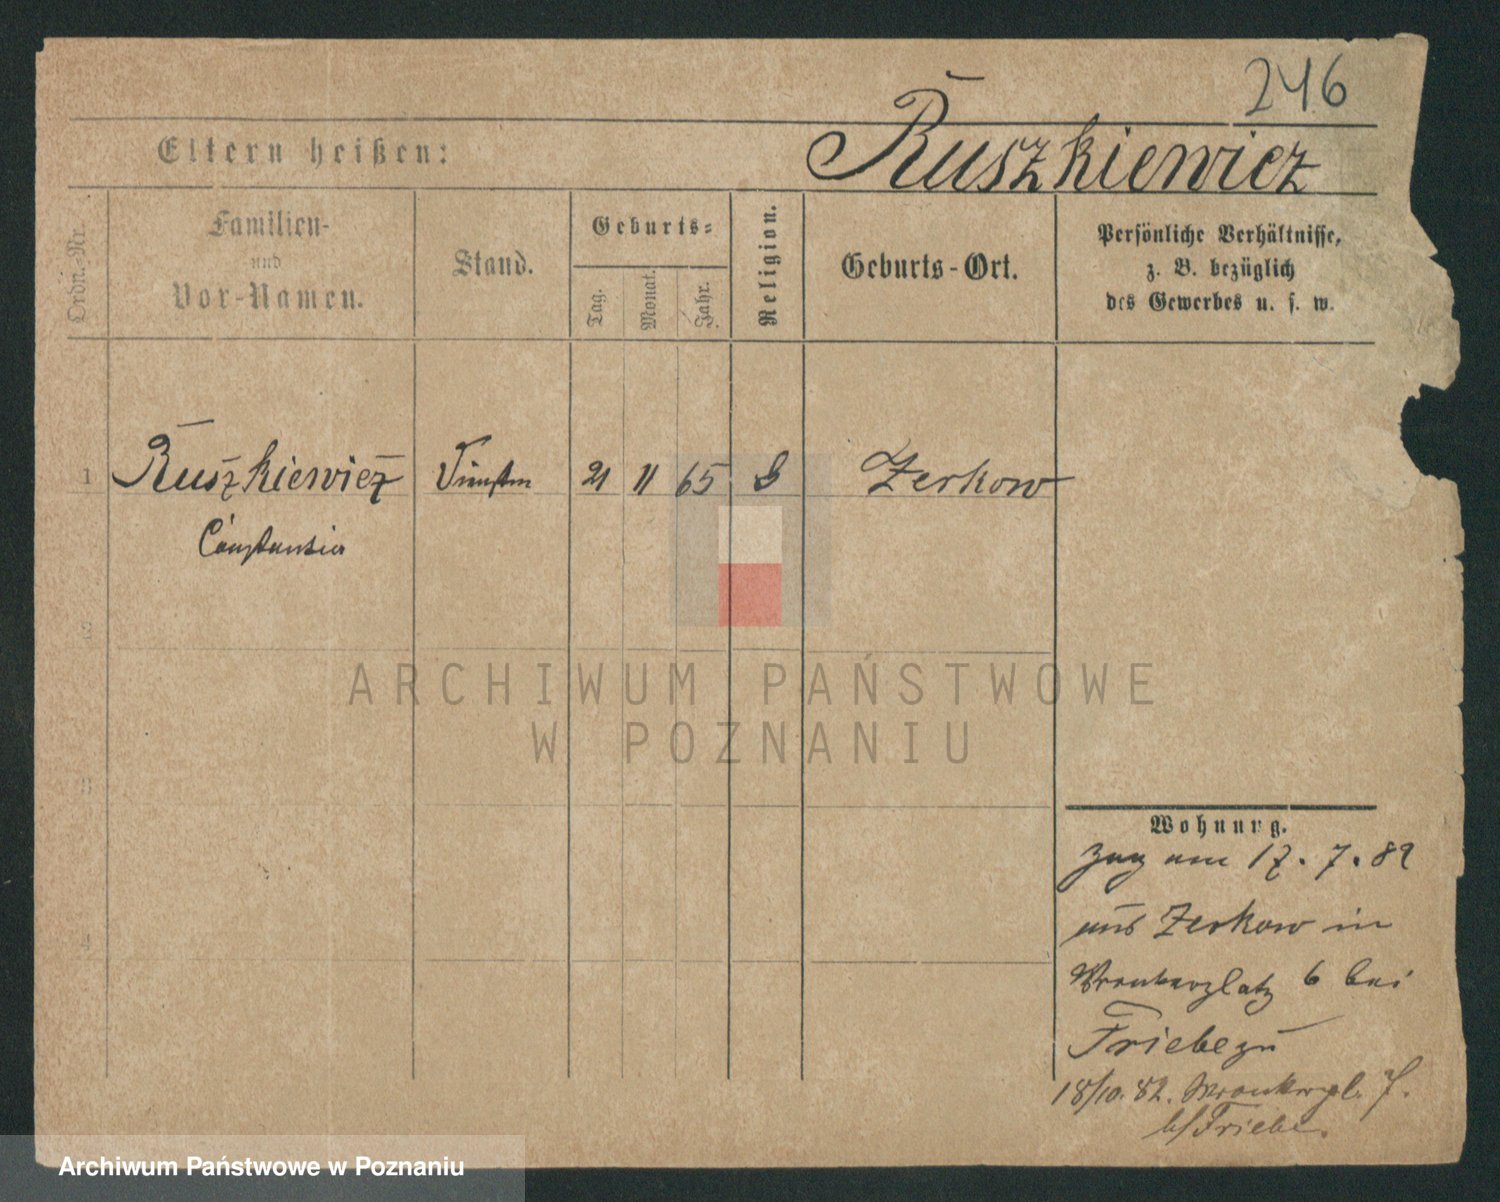 246
Eltern heißen:
Ruszkiewicz
Ordn.-Nr.
Familien-
und
Vor-Namen.
Stand.
Geburts-
Tag.
Monat.
Jahr.
Religion.
Geburts-Ort.
Persönliche Verhältnisse,
z. B. bezüglich
des Gewerbes u. s. w.
1 Ruszkiewicz 21 11 65 Zerkow
Constantia
2
3
4
ARCHIWUM PAŃSTWOWE
W POZNANIU
Wohnung.
Zug am 17. 7. 82
aus Zerkow in
Wronkerplatz 6 bei
Friebe zu
18/10. 82. Wronkerpl. 7.
b/ Friebe.
Archiwum Państwowe w Poznaniu